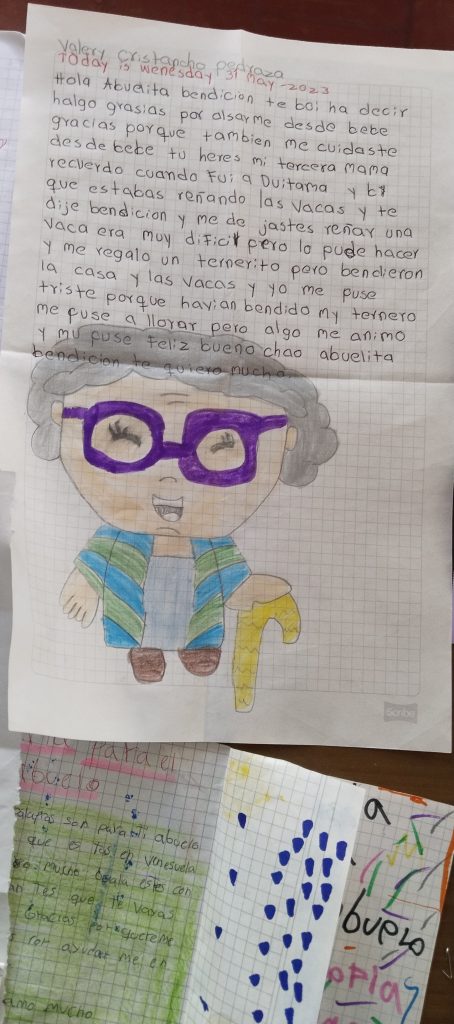 Valery Cristancho Pedraza
TOday is wenesday 31 May -2023
Hola Abuelita bendicion te boi ha decir
halgo grasias por alsarme desde bebe
gracias porque tambien me cuidaste
desde bebe tu heres mi tercera mama
recuerdo cuando Fui a Duitama y
que estabas reñando las vacas y te
dije bendicion y me de jastes reñar una
vaca era muy dificil pero lo pude hacer
y me regalo un ternerito pero bendieron
la casa y las vacas y yo me puse
triste porque havian bendido my ternero
me puse a llorar pero algo me animo
y mu puse Feliz bueno chao abuelita
bendicion te quiero mucho.
Scribe
para el
son para ti abuelo
que es tas en venesuela
mucho Ojala estes con
que te vayas
Gracias por quererme
por ayudar me en
amo mucho
a
buelo